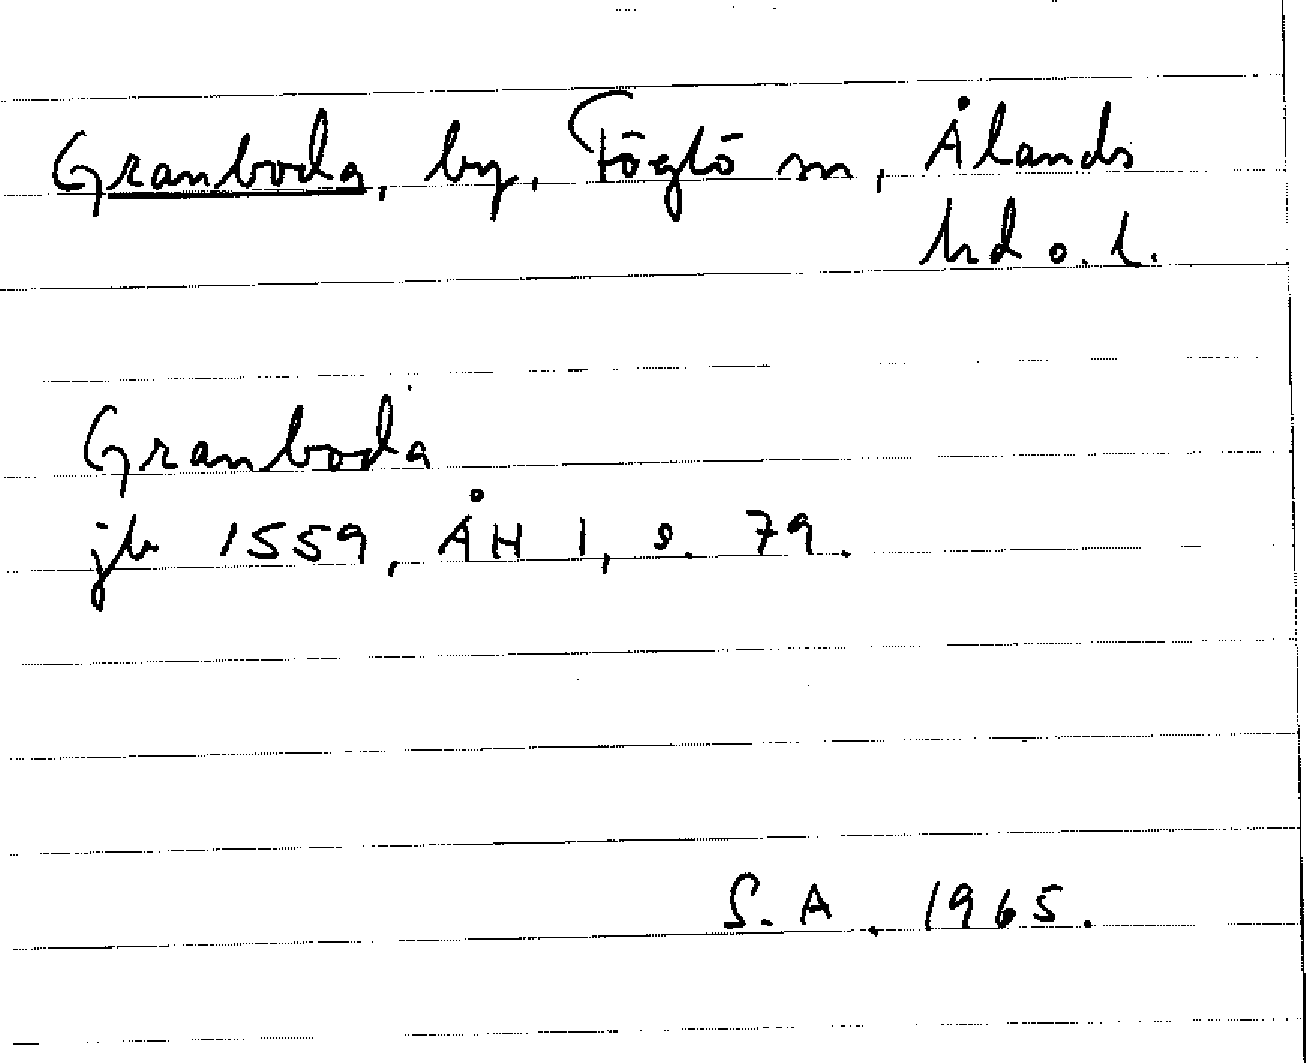 Granboda, by, Föglö sn, Ålands
hd o. l.
Granboda
jb 1559, ÅH I, s. 79.
S. A. 1965.